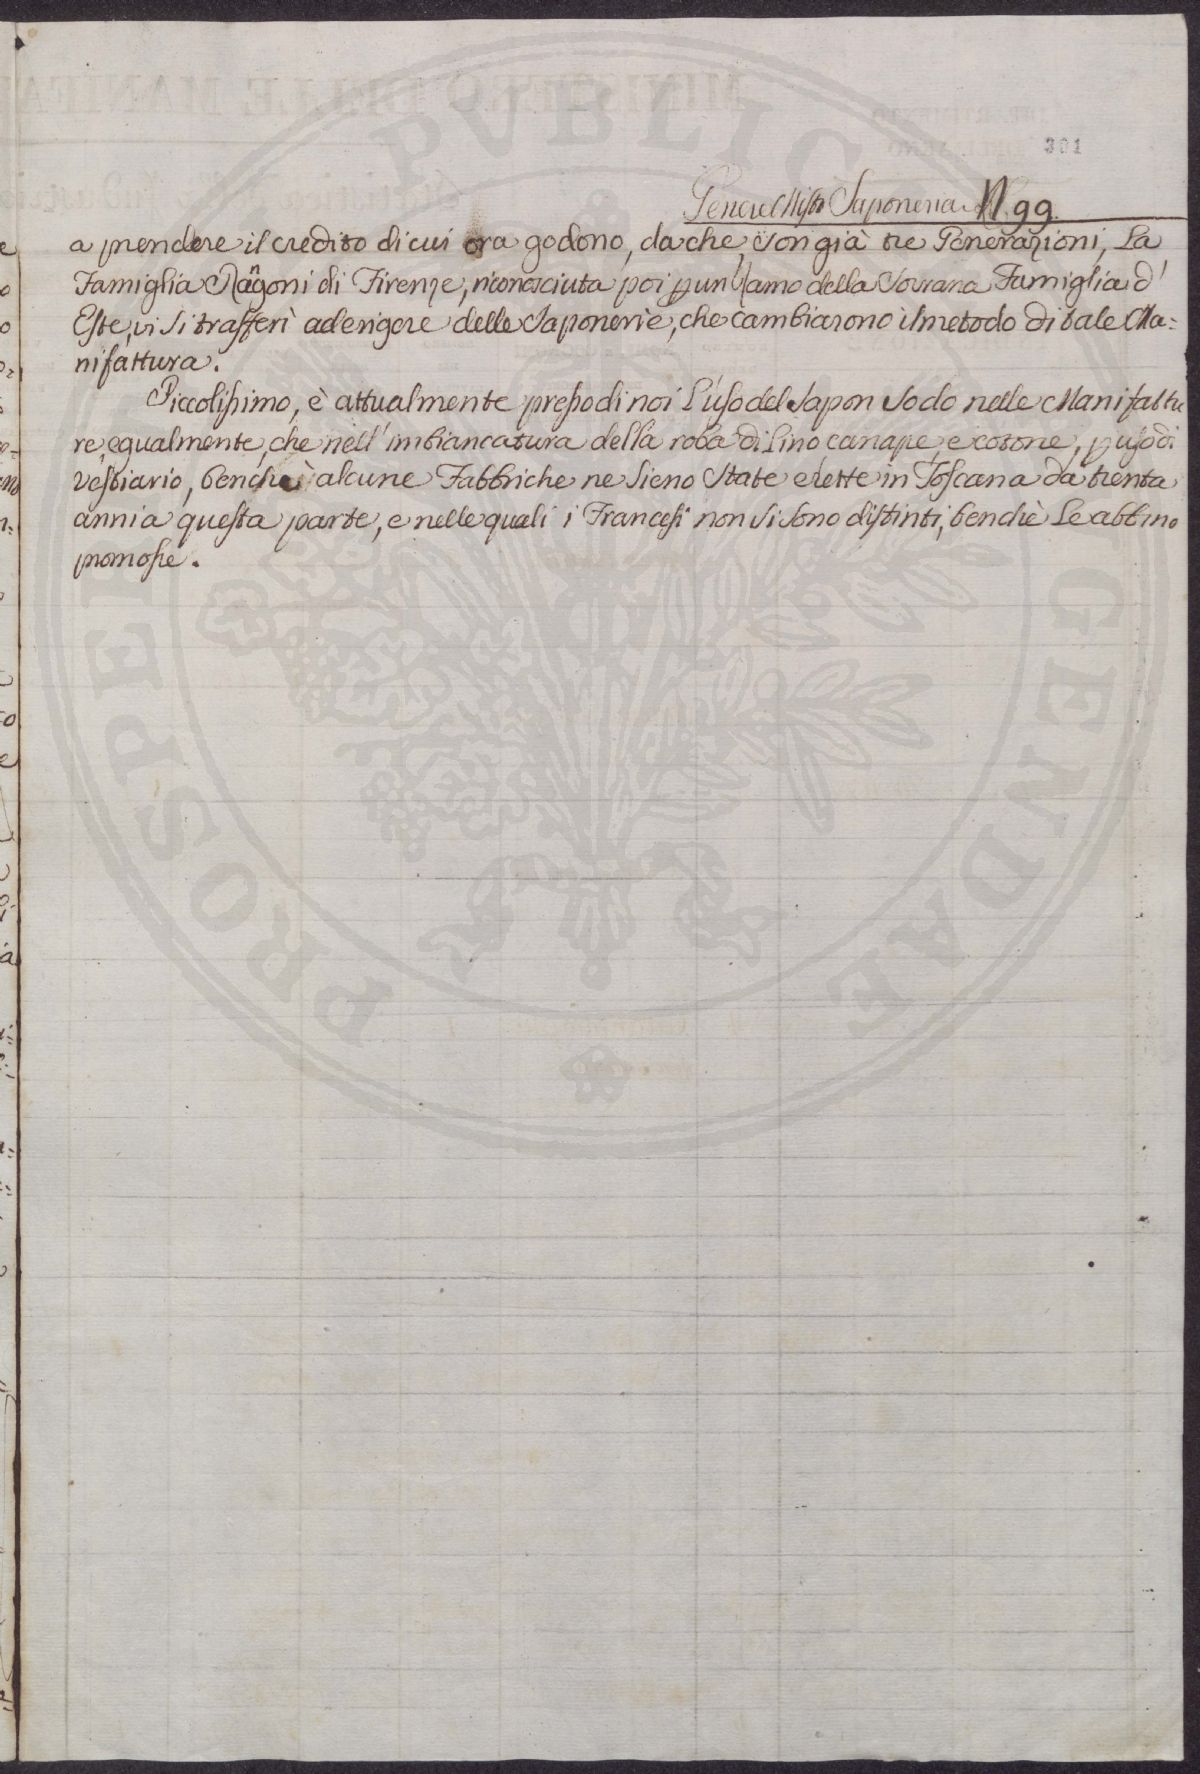 301
Genere Misto Saponeria N. 99.
a prendere il credito di cui ora godono, da che, son già tre Generazioni, La
Famiglia Rangoni di Firenze, riconosciuta poi p un Ramo della Sovrana Famiglia d'
Este, vi si trasferì ad erigere delle Saponerie, che cambiarono il metodo di tale Ma=
nifattura.
Piccolissimo, è attualmente presso di noi L'uso del Sapon Sodo nelle Manifattu
re, egualmente, che nell' imbiancatura della roba di Lino canape, e cotone, p uso di
vestiario, benchè alcune Fabbriche ne Sieno State erette in Toscana da trenta
anni a questa parte, e nelle quali i Francesi non si sono distinti, benchè Le abbino
promosse.
PROSPERITATI PVBLICAE AVGENDAE